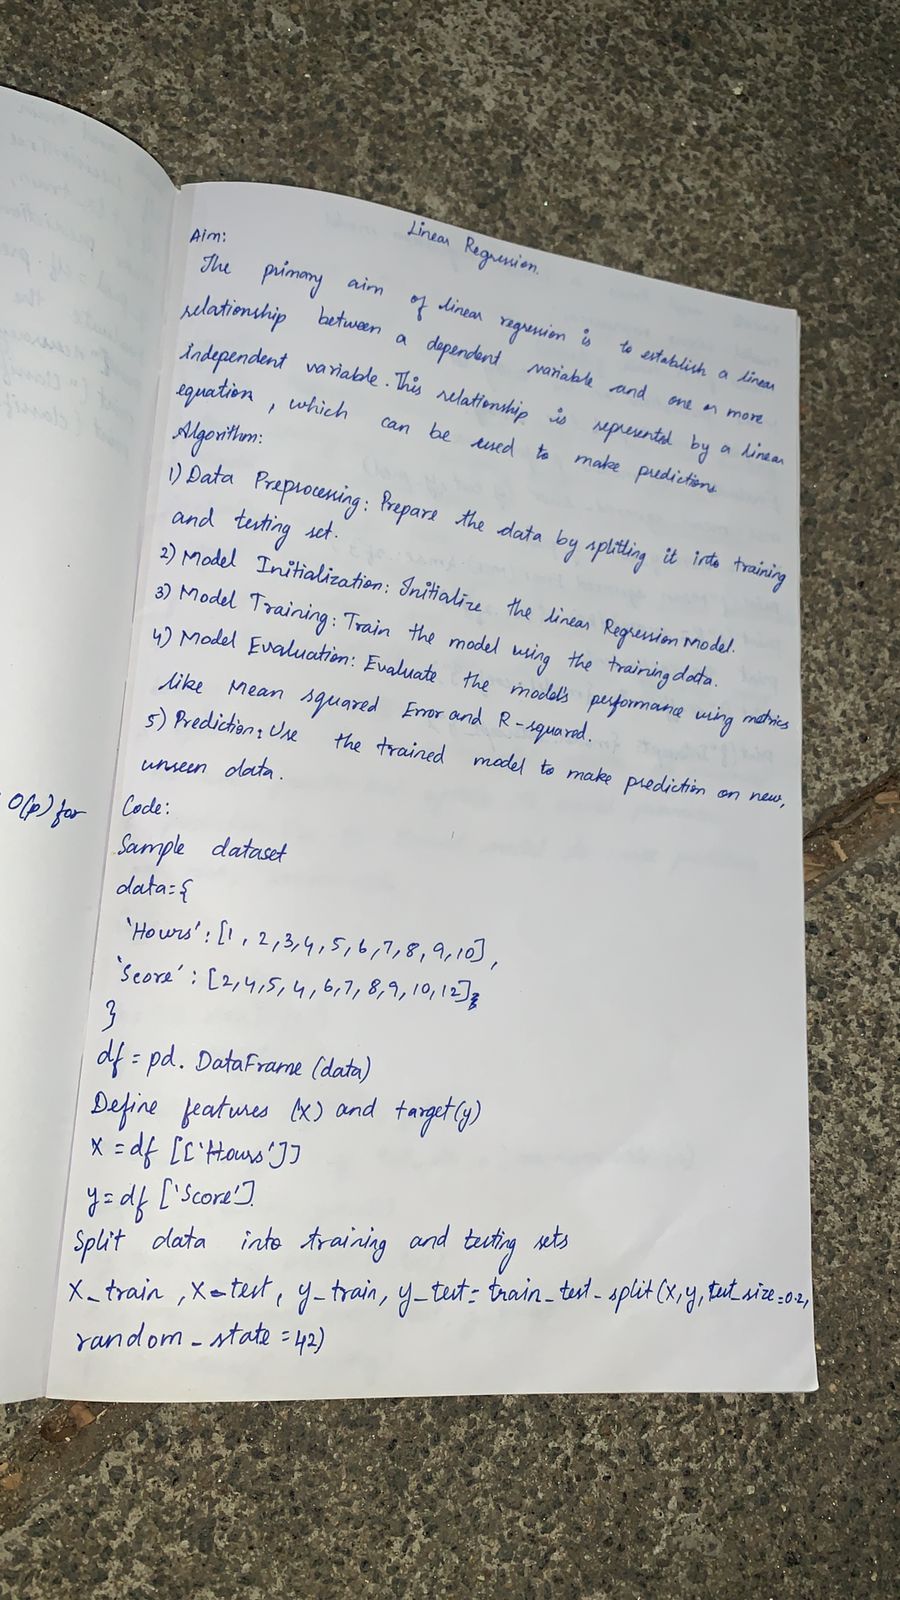 Linear Regression.
Aim:
The primary aim of linear regression is to establish a linear
relationship between a dependent variable and one or more
independent variable. This relationship is represented by a linear
equation, which can be used to make predictions
Algorithm:
1) Data Preprocessing: Prepare the data by splitting it into training
and testing set.
2) Model Initialization: Initialize the linear Regression Model.
3) Model Training: Train the model using the training data.
4) Model Evaluation: Evaluate the model's performance using metrics
like Mean squared Error and R-squared.
5) Prediction: Use the trained model to make prediction on new,
unseen data.
Code:
Sample dataset
data={
'Hours': [1, 2, 3, 4, 5, 6, 7, 8, 9, 10],
'Score': [2, 4, 5, 4, 6, 7, 8, 9, 10, 12]
}
df = pd. DataFrame (data)
Define features (x) and target(y)
x = df [['Hours']]
y = df ['Score'].
Split data into training and testing sets
x_train, x_test, y_train, y_test= train_test_split(x, y, test_size=0.2,
random_state = 42)
O(p) for